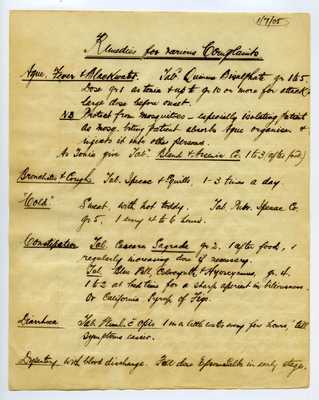 1/7/05
Remedies for various Complaints
Ague, Fever & Blackwater. Tab. Quinine Bisulphate gr 1 & 5
Dose gr 1 as tonic & up to gr 10 or more for attack
large dose before onset.
NB Protect from mosquitoes – especially isolating patient
as mosq. biting patient absorbs Ague organism &
injects it into other persons.
As Tonic give Tab. & Co. 1 to 3 (after food)
Bronchitis & Cough. Tab. Ipecac & Squills. 1–3 times a day
"Cold" Sweat with hot toddy. Tab. Pulv. Ipecac Co.
gr 5. 1 every 4 to 6 hours.
Constipation Tab. Cascara Sagrada gr 2. 1 after food,
regularly increasing dose if necessary.
Tab. Blue Pill, Colocynth & Hyoscyamus, gr 4.
1 to 2 at bed time for a sharp aperient in biliousness.
Or California Syrup of Figs.
Diarrhoea Tab. Plumb. c̄ Opio 1 in a little water every few hours, till
symptoms cease.
Dysentery with blood discharge. Full dose Epsom Salts in early stage.